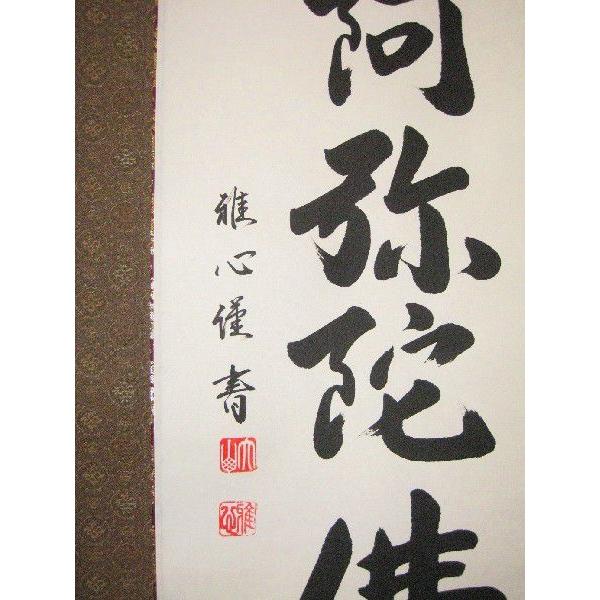 阿弥陀佛
雅心謹書